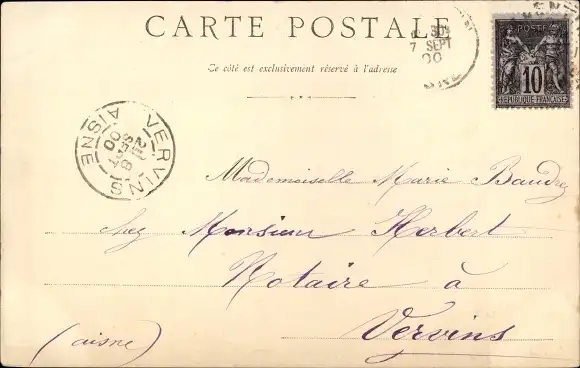 CARTE POSTALE
Ce côté est exclusivement réservé à l'adresse
7 SEPT
00
POSTE
10
REPUBLIQUE FRANÇAISE
VERVINS
AISNE
8
SEPT
00
Mademoiselle Marie Baudry
chez Monsieur Herbert
Notaire à
Vervins
(aisne)